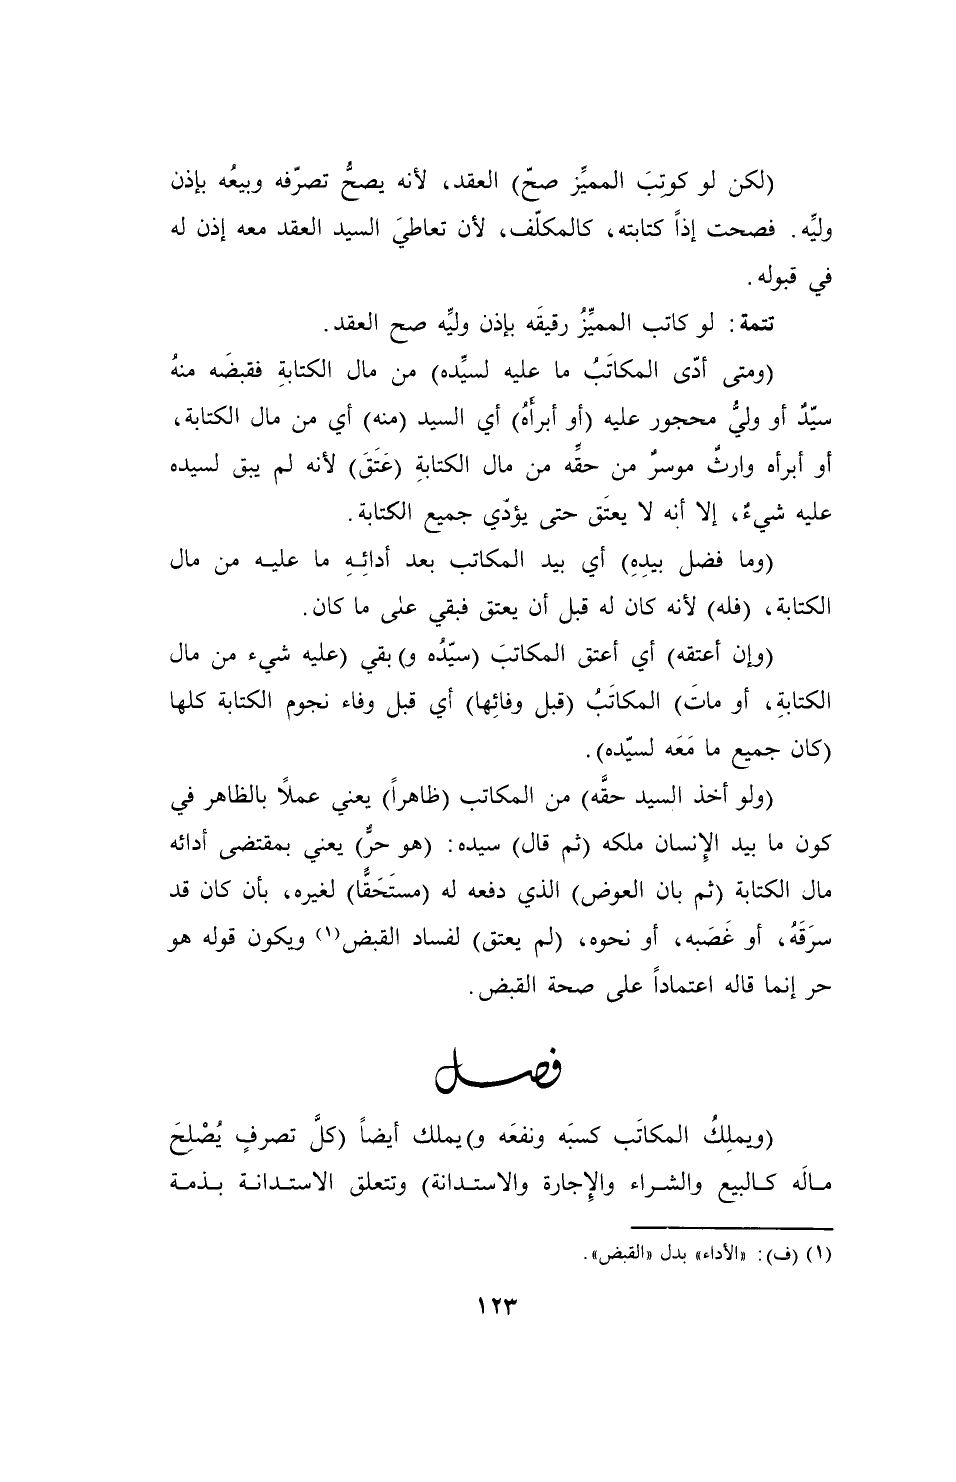 (لكن لو كوتِبَ المميِّز صحّ) العقد، لأنه يصحُّ تصرّفه وبيعُه بإذن
وليِّه. فصحت إذاً كتابته، كالمكلّف، لأن تعاطيَ السيد العقد معه إذن له
في قبوله.
تتمة: لو كاتب المميِّزُ رقيقَه بإذن وليِّه صح العقد.
(ومتى أدّى المكاتَبُ ما عليه لسيِّده) من مال الكتابةِ فقبضَه منهُ
سيّدٌ أو وليُّ محجور عليه (أو أبرأَهُ) أي السيد (منه) أي من مال الكتابة،
أو أبرأه وارثٌ موسرٌ من حقِّه من مال الكتابةِ (عَتَقَ) لأنه لم يبق لسيده
عليه شيءٌ، إلا أنه لا يعتَق حتى يؤدّي جميع الكتابة.
(وما فضل بيدِهِ) أي بيد المكاتب بعد أدائِهِ ما عليه من مال
الكتابة، (فله) لأنه كان له قبل أن يعتق فبقي على ما كان.
(وإن أعتقه) أي أعتق المكاتبَ (سيّدُه و) بقي (عليه شيء من مال
الكتابةِ، أو ماتَ) المكاتَبُ (قبل وفائِها) أي قبل وفاء نجوم الكتابة كلها
(كان جميع ما مَعَه لسيّده).
(ولو أخذ السيد حقَّه) من المكاتب (ظاهراً) يعني عملاً بالظاهر في
كون ما بيد الإِنسان ملكه (ثم قال) سيده: (هو حرٌّ) يعني بمقتضى أدائه
مال الكتابة (ثم بان العوض) الذي دفعه له (مستَحَقًّا) لغيره، بأن كان قد
سرَقَهُ، أو غَصَبه، أو نحوه، (لم يعتق) لفساد القبض(١) ويكون قوله هو
حر إنما قاله اعتماداً على صحة القبض.
فصل
(ويملِكُ المكاتَب كسبَه ونفعَه و) يملك أيضاً (كلَّ تصرفٍ يُصْلِحَ
مالَه كالبيع والشراء والإِجارة والاستدانة) وتتعلق الاستدانة بذمة
(١) (ف): «الأداء» بدل «القبض».
١٢٣